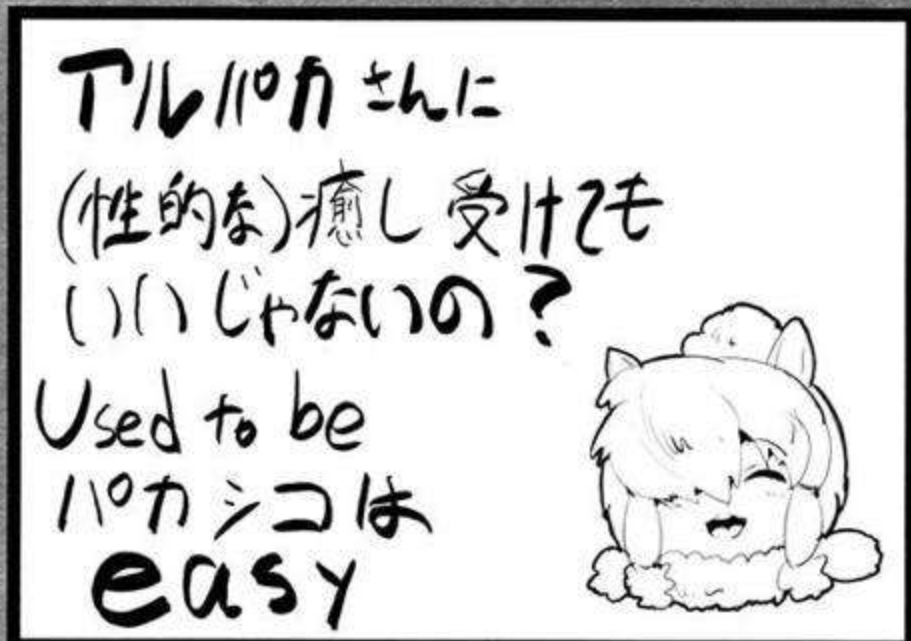 アルパカさんに
(性的な)癒し受けても
いいじゃないの?
Used to be
パカシコは
easy